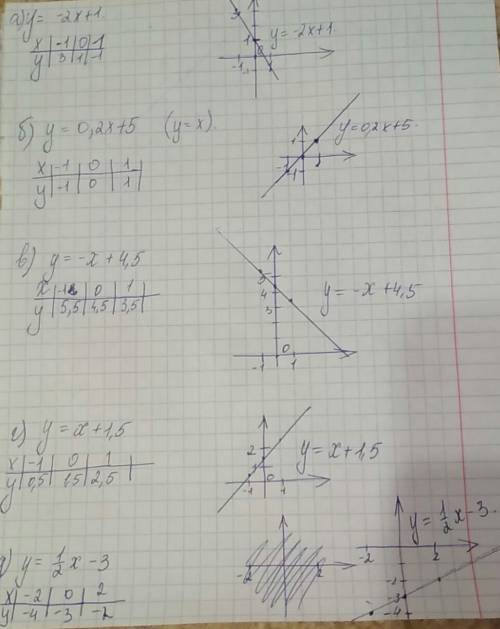 а) y = -2x+1.
x | -1 | 0 | 1
y | 3 | 1 | -1
3
1
0
-1 1
-1
y = -2x+1.
б) y = 0,2x+5 (y=x).
x | -1 | 0 | 1
y | -1 | 0 | 1
1
-1 1
-1
y=0,2x+5.
в) y = -x + 4,5
x | -1 | 0 | 1
y | 5,5 | 4,5 | 3,5
5
4
3
0
-1 1
y = -x + 4,5
г) y = x + 1,5
x | -1 | 0 | 1
y | 0,5 | 1,5 | 2,5
2
1
0
-1 1
y = x + 1,5
y = 1/2 x - 3
x | -2 | 0 | 2
y | -4 | -3 | -2
-2 2
y = 1/2 x - 3.
-2 2
-1
-3
-4